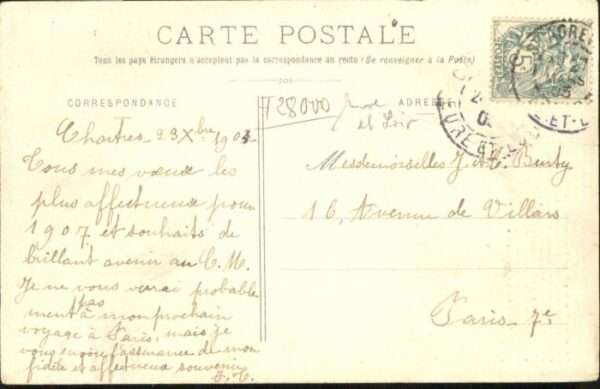 CARTE POSTALE
Tous les pays étrangers n'acceptent pas la correspondance au recto (Se renseigner à la Poste)
CORRESPONDANCE
ADRESSE
T28000
Eure
et Loir
Chartres 23 Xbre 190
Tous mes vœux les
plus affectueux pour
1907 et souhaits de
brillant avenir au C. M.
Je ne vous verrai probable
pas
ment à mon prochain
voyage à Paris, mais je
vous envoie l'assurance de mon
fidèle et affectueux souvenir
Mesdemoiselles J. et
16, Avenue de Villars
Paris 7e
5